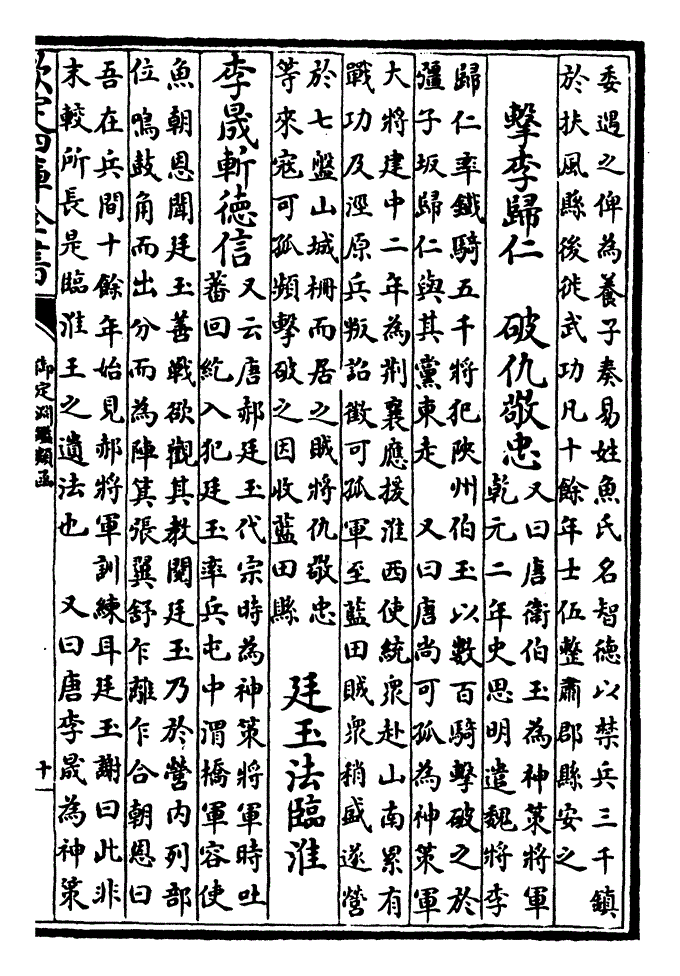 委遇之俾為養子奏易姓魚氏名智德以禁兵三千鎮
於扶風縣後徙武功凡十餘年士伍整肅郡縣安之
擊李歸仁　破仇敬忠
又曰唐衛伯玉為神策將軍
乾元二年史思明遣魏將李
歸仁率鐵騎五千將犯陝州伯玉以數百騎擊破之於
疆子坂歸仁與其黨東走　又曰唐尚可孤為神策軍
大將建中二年為荆襄應援淮西使統衆赴山南累有
戰功及涇原兵叛詔徵可孤軍至藍田賊衆稍盛遂營
於七盤山城柵而居之賊將仇敬忠
等來寇可孤頻擊破之因收藍田縣
廷玉法臨淮
李晟斬德信
又云唐郝廷玉代宗時為神策將軍時吐
蕃回紇入犯廷玉率兵屯中渭橋軍容使
魚朝恩聞廷玉善戰欲觀其教閱廷玉乃於營内列部
位鳴鼓角而出分而為陣箕張翼舒乍離乍合朝恩曰
吾在兵間十餘年始見郝將軍訓練耳廷玉謝曰此非
末較所長是臨淮王之遺法也　又曰唐李晟為神策
欽定四庫全書
御定淵鑑類函
十一